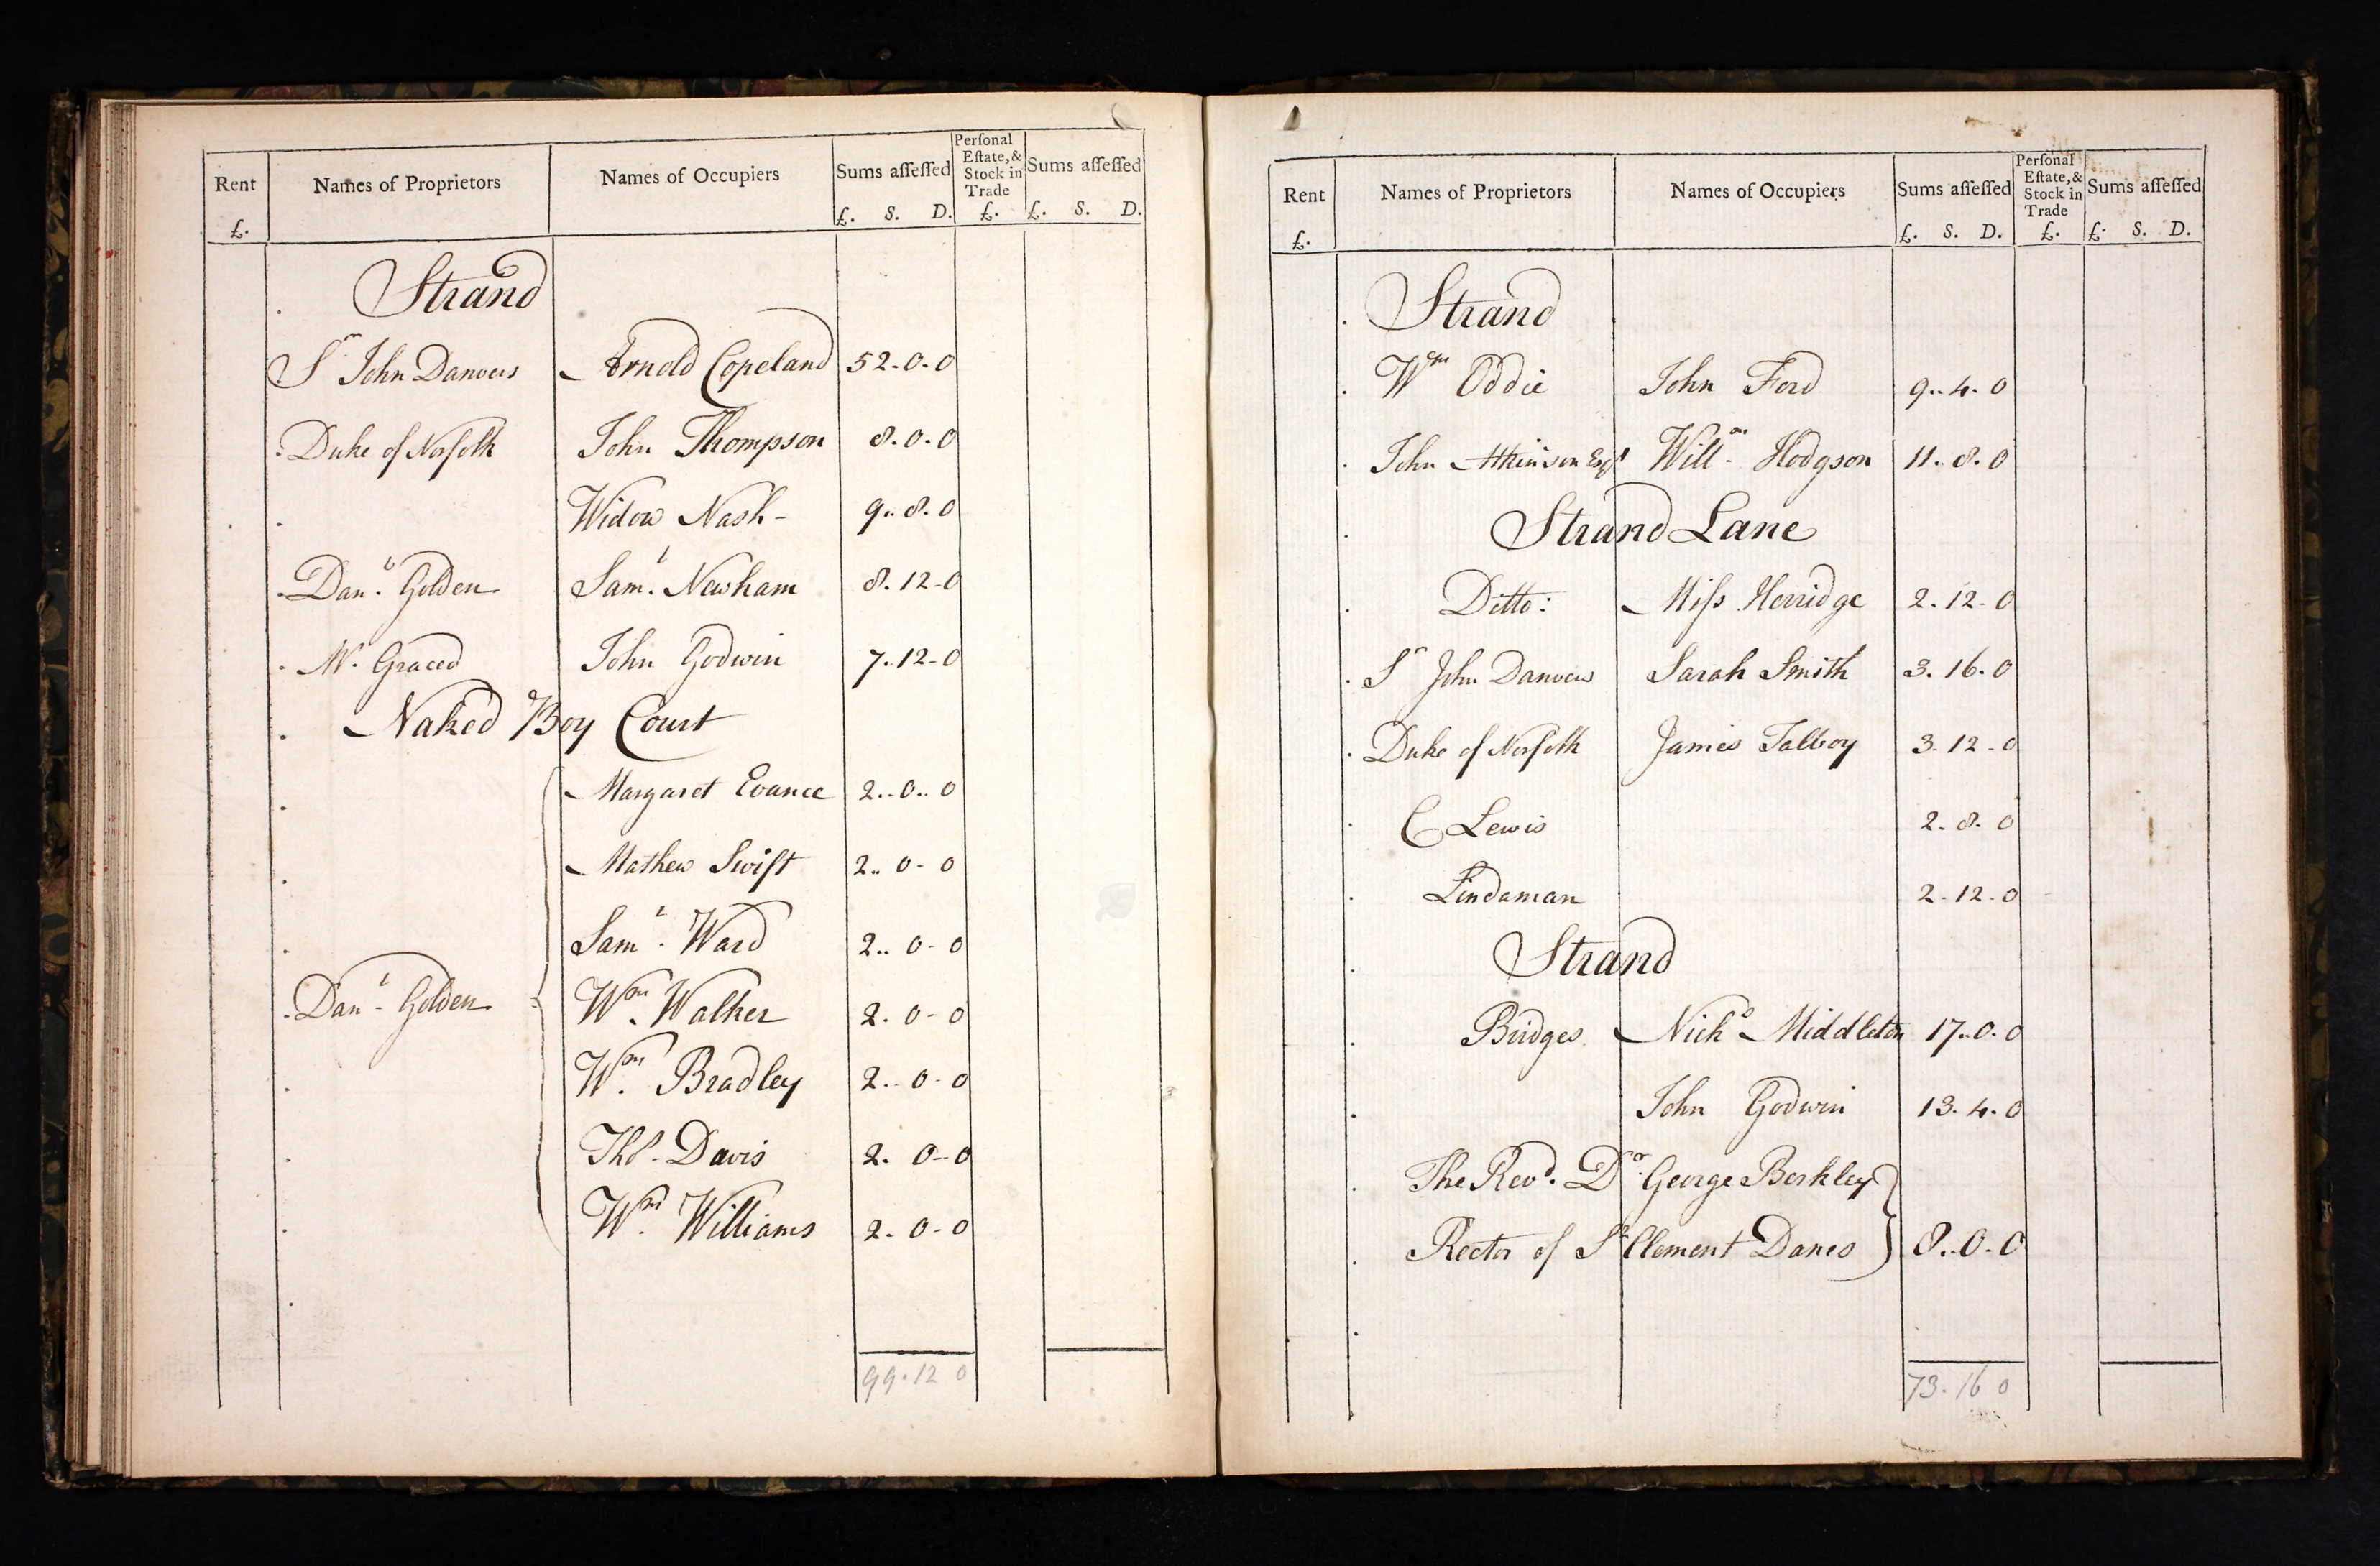 Rent Names of Proprietors Names of Occupiers Sums aſſeſſed Perſonal Eſtate, & Stock in Trade Sums aſſeſſed
£. £. S. D. £. £. S. D.
Strand
Sr John Danvers Arnold Copeland 52-0-0
Duke of Norfolk John Thompson 8.0.0
Widow Nash - 9.8.0
Danl. Golden Saml. Newham 8.12-0
Mr. Graced John Godwin 7.12-0
Naked Boy Court
Margaret Evance 2..0..0
Mathew Swift 2..0-0
Saml. Ward 2..0-0
Danl. Golden Wm. Walker 2.0-0
Wm. Bradley 2..0-0
Thos. Davis 2.0-0
Wm. Williams 2.0-0
99.12 0
Rent Names of Proprietors Names of Occupiers Sums aſſeſſed Perſonal Eſtate, & Stock in Trade Sums aſſeſſed
£. £. S. D. £. £. S. D.
Strand
Wm Oddie John Ford 9..4.0
John Atkinson Esqr Willm Hodgson 11.8.0
Strand Lane
Ditto: Miſs Herridge 2.12-0
Sr John Danvers Sarah Smith 3.16.0
Duke of Norfolk James Talboy 3.12-0
C Lewis 2.8.0
Lindaman 2.12.0
Strand
Bridges Nichs Middleton 17..0.0
John Godwin 13.4.0
The Revd. Dr. George Berkley
Rector of St Clement Danes 8..0-0
73.16 0